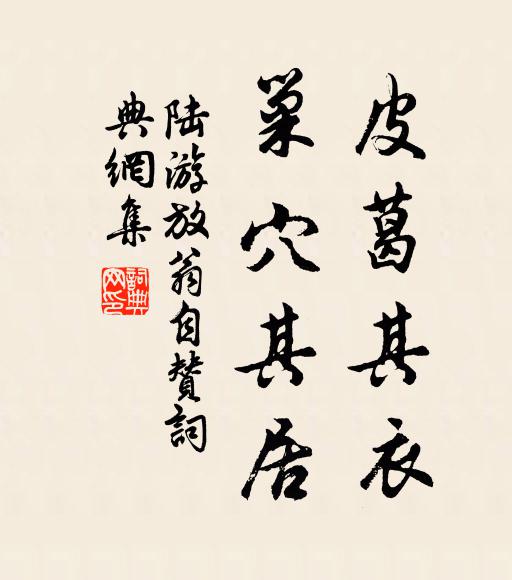 皮葛其衣
巢穴其居
陸游放翁自贊詞
典網集
詞典
网印